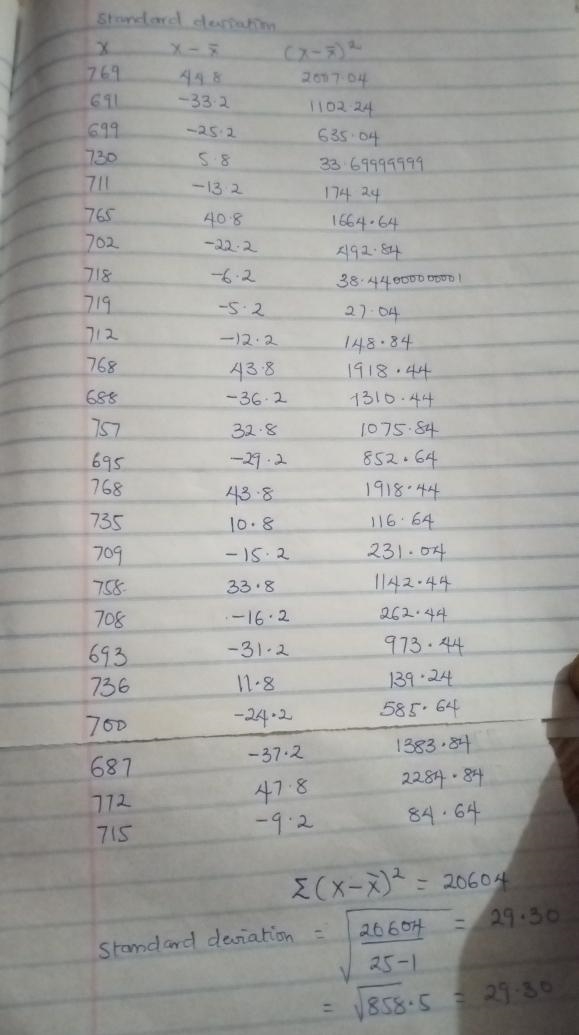 Standard deviation
x x - x̄ (x-x̄)²
769 44.8 2007.04
691 -33.2 1102.24
699 -25.2 635.04
730 5.8 33.69999999
711 -13.2 174.24
765 40.8 1664.64
702 -22.2 492.84
718 -6.2 38.4400000001
719 -5.2 27.04
712 -12.2 148.84
768 43.8 1918.44
688 -36.2 1310.44
757 32.8 1075.84
695 -29.2 852.64
768 43.8 1918.44
735 10.8 116.64
709 -15.2 231.04
758 33.8 1142.44
708 -16.2 262.44
693 -31.2 973.44
736 11.8 139.24
700 -24.2 585.64
687 -37.2 1383.84
772 47.8 2284.84
715 -9.2 84.64
Σ(x-x̄)² = 20604
Standard deviation = √(20604/25-1) = 29.30
= √858.5 = 29.30